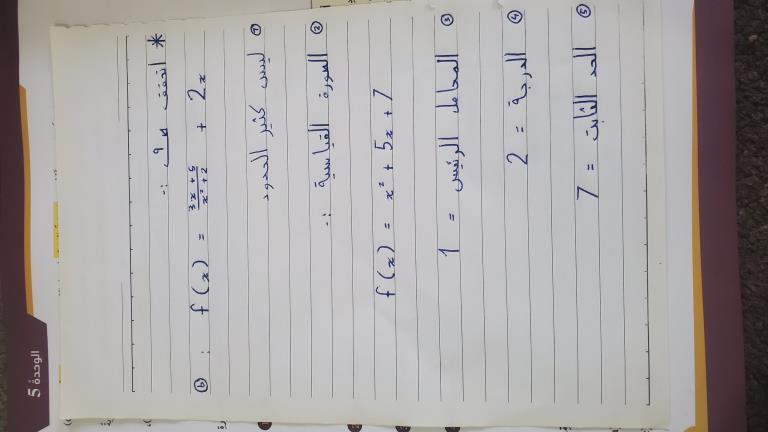 * اتحقق من فهمي :-
ⓑ : f(x) = \frac{3x+5}{x²+2} + 2x
① ليس كثير الحدود
② الصورة القياسية :-
f(x) = x² + 5x + 7
③ المعامل الرئيس = 1
④ الدرجة = 2
⑤ الحد الثابت = 7
الوحدة 5